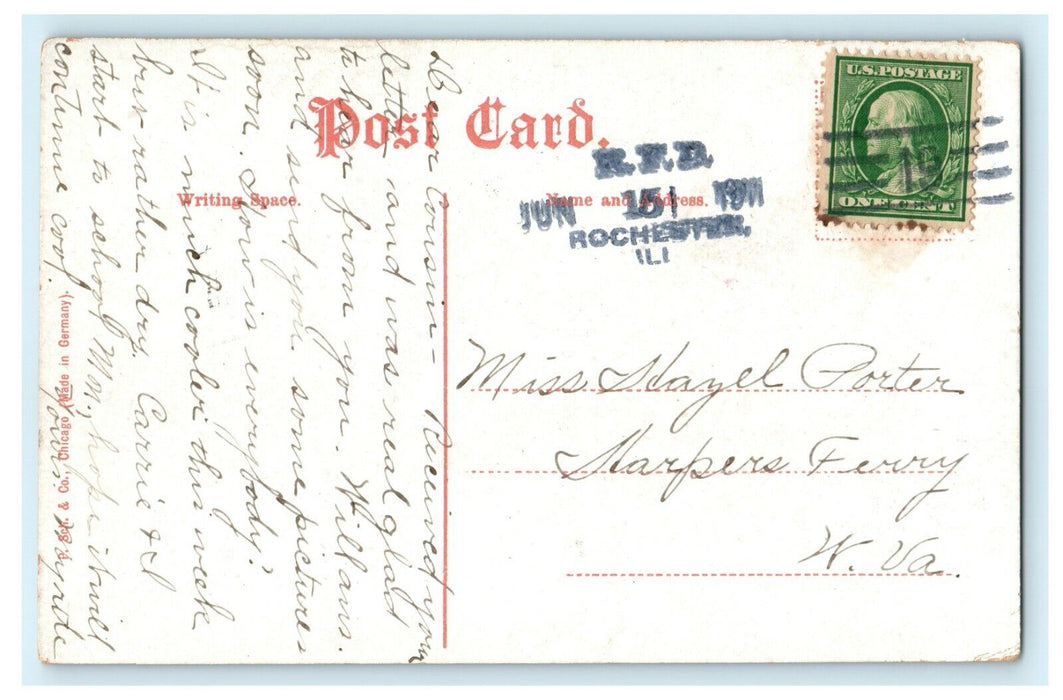 Post Card.
Writing Space.
Name and Address.
U.S. POSTAGE
ONE CENT
R.F.D.
JUN 15 1911
ROCHESTER,
ILL
Miss Hazel Porter
Harpers Ferry
W. Va.
Dear Cousin- Received your
letter and was real glad
to hear from you. Will ans.
and send you some pictures
soon. How is everybody?
It is much cooler this week
but rather dry. Carrie & I
start to school Mon., hope it will
continue cool.
Yours.
P. Sch. & Co., Chicago (Made in Germany).